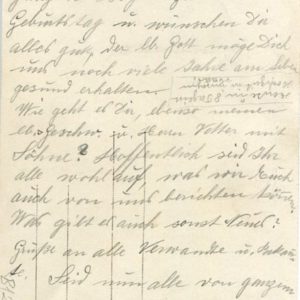 Geburtstag u. wünschen Dir
alles gute, der lb. Gott möge Dich
uns noch viele Jahre am Leben
gesund erhalten.
Wie geht es Dir, ebenso meinen
lb. Geschw. u. Herrn Vetter mit
Söhne? Hoffentlich seid Ihr
alle wohlauf, was wir Euch
auch von uns berichten können.
Was gibt es auch sonst Neues?
Grüße an alle Verwandte u. Bekan
Seid nun alle von ganzem